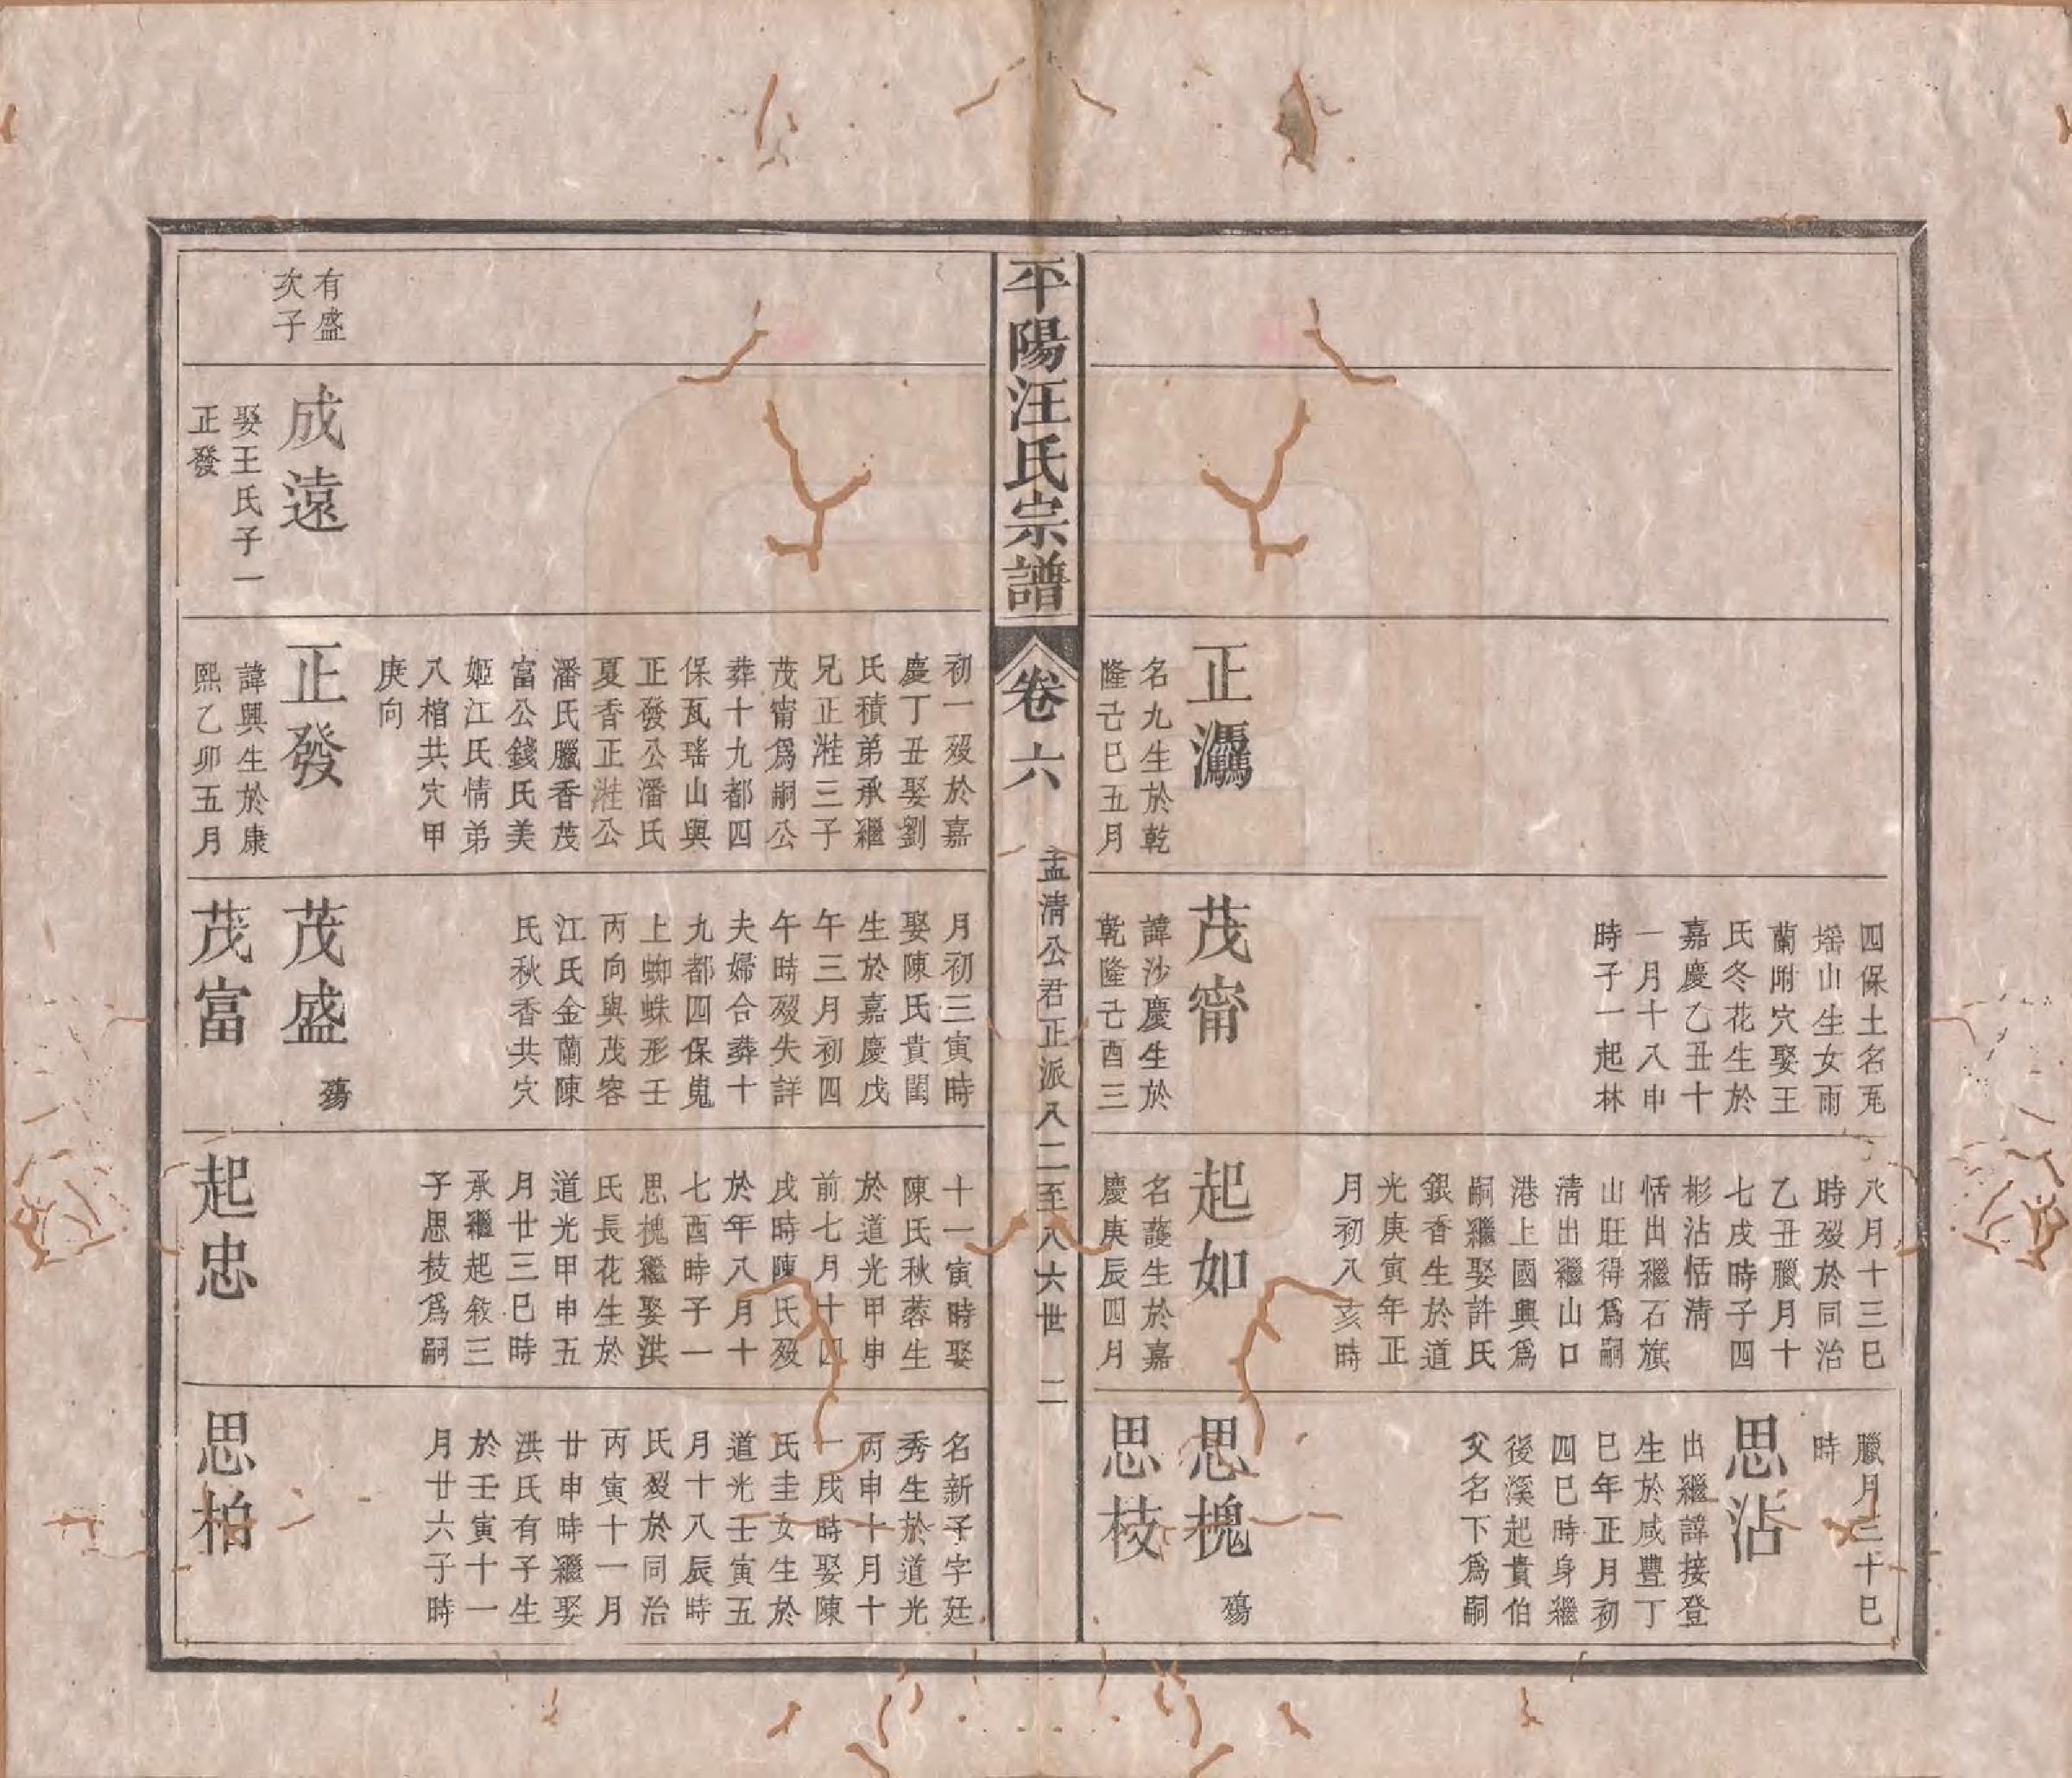 正
名九生於乾
隆己巳五月
四保土名瓦
瑤山生女雨
蘭附穴娶王
氏冬花生於
嘉慶乙丑十
一月十八申
時子一起林
茂甯
諱沙慶生於
乾隆己酉三
八月十三巳
時歿於同治
乙丑臘月十
七戌時子四
彬沾恬清
恬出繼石旗
山旺得爲嗣
清出繼山口
港上國興爲
嗣繼娶許氏
銀香生於道
光庚寅年正
月初八亥時
起如
名護生於嘉
慶庚辰四月
臘月三十巳
時
思沾
出繼諱接登
生於咸豐丁
巳年正月初
四巳時身繼
後溪起貴伯
父名下爲嗣
思槐
殤
思枝
平陽汪氏宗譜
卷六
孟清公君正派八二至八六世
二
初一歿於嘉
慶丁丑娶劉
氏積弟承繼
兄正溎三子
茂甯爲嗣公
葬十九都四
保瓦瑤山與
正發公潘氏
夏香正溎公
潘氏臘香茂
富公錢氏美
姬江氏情弟
八棺共穴甲
庚向
月初三寅時
娶陳氏貴閨
生於嘉慶戊
午三月初四
午時歿失詳
夫婦合葬十
九都四保嵬
上蜘蛛形壬
丙向與茂容
江氏金蘭陳
氏秋香共穴
十一寅時娶
陳氏秋蓉生
於道光甲申
前七月十四
戌時陳氏歿
於年八月十
七酉時子一
思槐繼娶洪
氏長花生於
道光甲申五
月廿三巳時
承繼起敘三
子思枝爲嗣
名新子字廷
秀生於道光
丙申十月十
一戌時娶陳
氏圭女生於
道光壬寅五
月十八辰時
氏歿於同治
丙寅十一月
廿申時繼娶
洪氏有子生
於壬寅十一
月廿六子時
有盛
次子
成遠
娶王氏子一
正發
正發
諱興生於康
熙乙卯五月
茂盛
殤
茂富
起忠
思柏